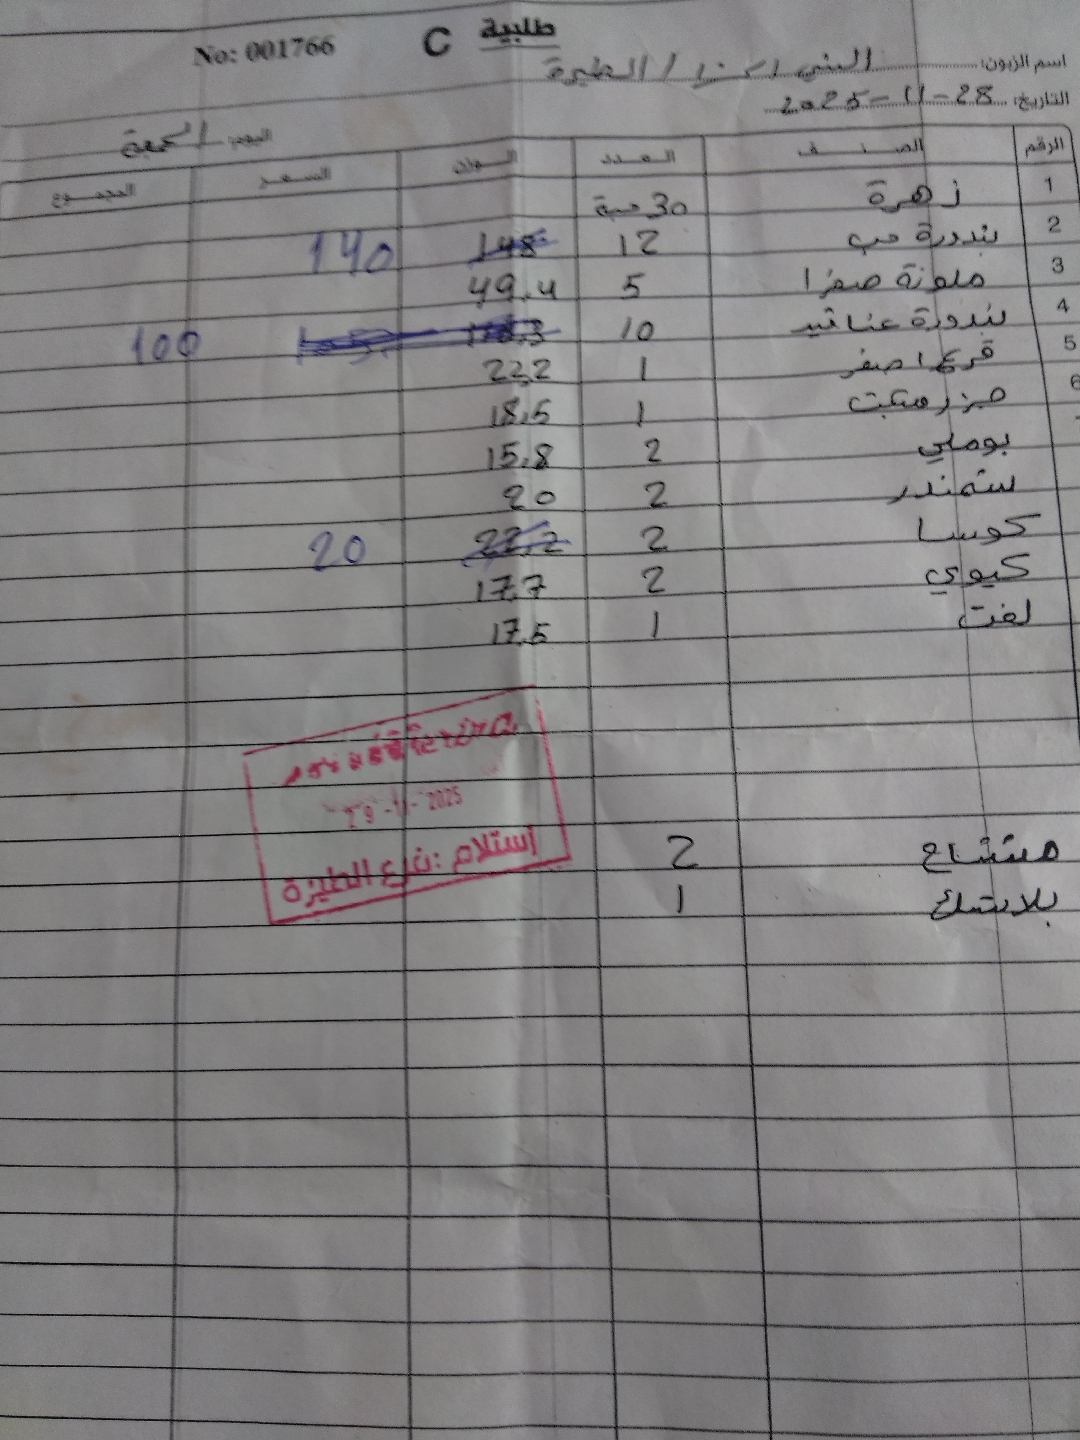 No: 001766 C طلبية
اسم الزبون: البني اخضر / الطيرة
التاريخ: 28-11-2025
اليوم: الجمعة
الرقم الصنف العدد الوزن السعر المجموع
1 زهرة 30 حبة
2 بندورة حب 12 148 140
3 ملونة صفرا 5 49.4
4 بندورة عناقيد 10 100
5 قرع اصفر 1 22.2
6 1 18.5
بوملي 2 15.8
شمندر 2 20
كوسا 2 22.2 20
كيوي 2 17.7
لفت 1 17.5
29-11-2025
استلام: فرع الطيرة
مشتاح 2
بلاستك 1